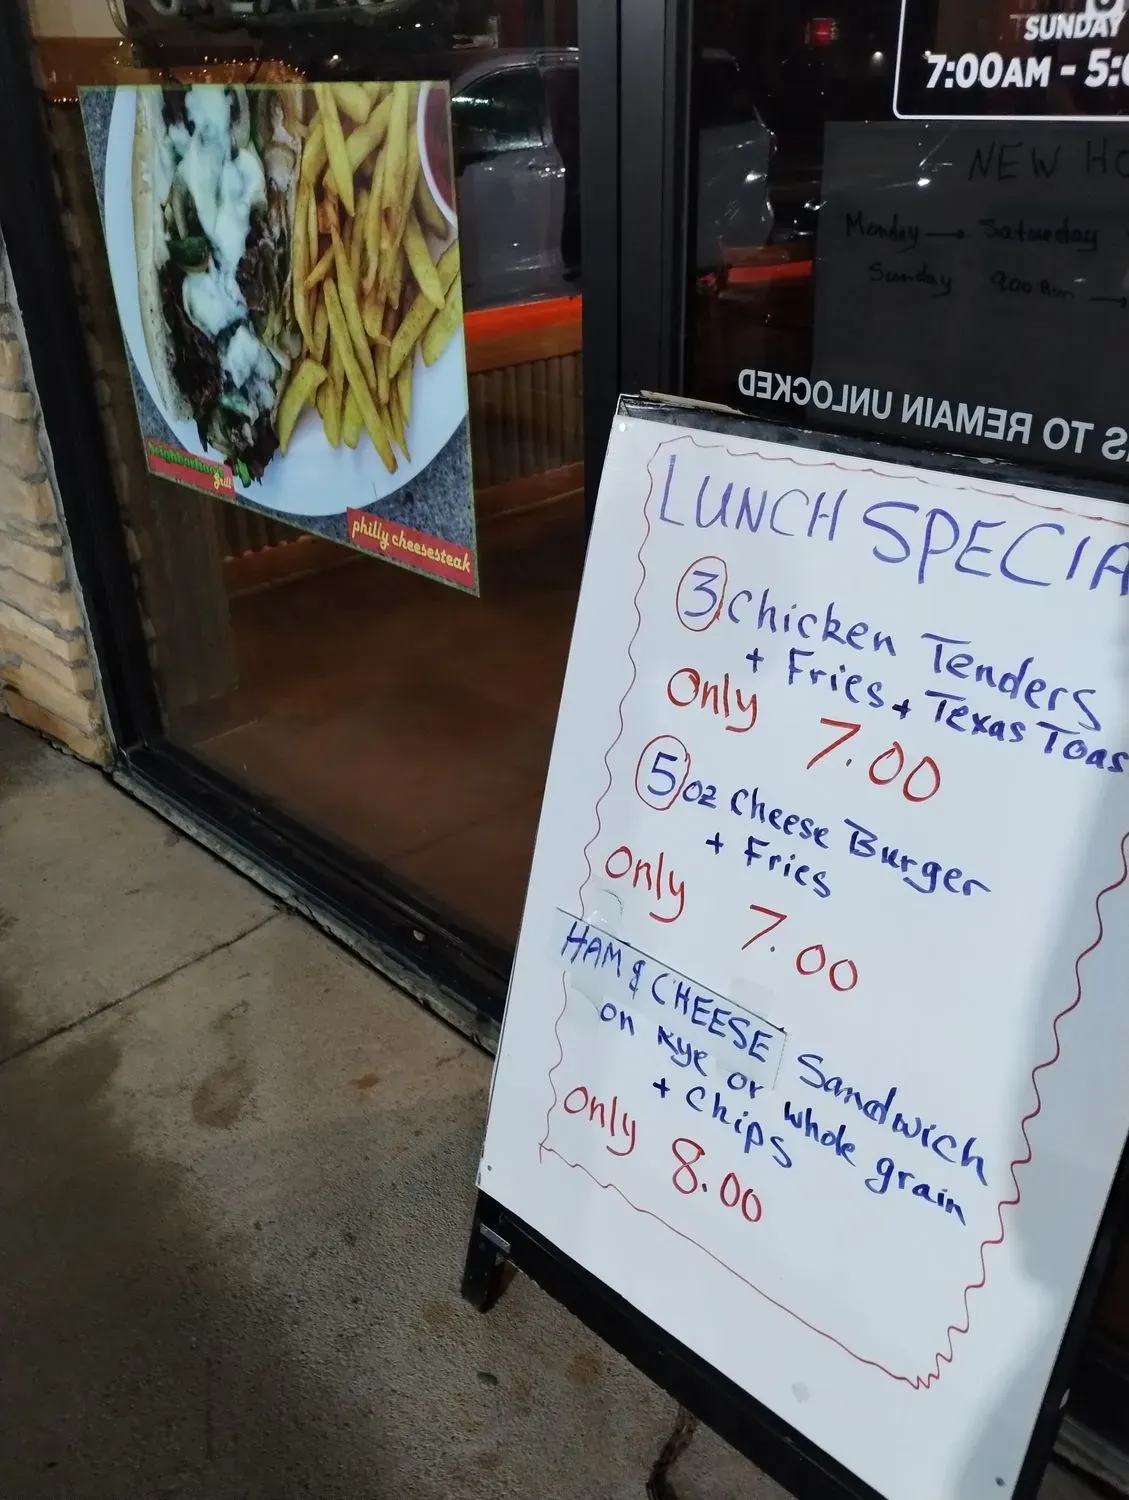 SUNDAY
7:00AM - 5:0
NEW HO
Monday → Saturday
Sunday 9:00 Am →
S TO REMAIN UNLOCKED
neighborhood
grill
philly cheesesteak
LUNCH SPECIA
3 Chicken Tenders
+ Fries + Texas Toas
Only 7.00
5 oz Cheese Burger
+ Fries
Only 7.00
HAM & CHEESE Sandwich
on Rye or whole grain
+ Chips
Only 8.00